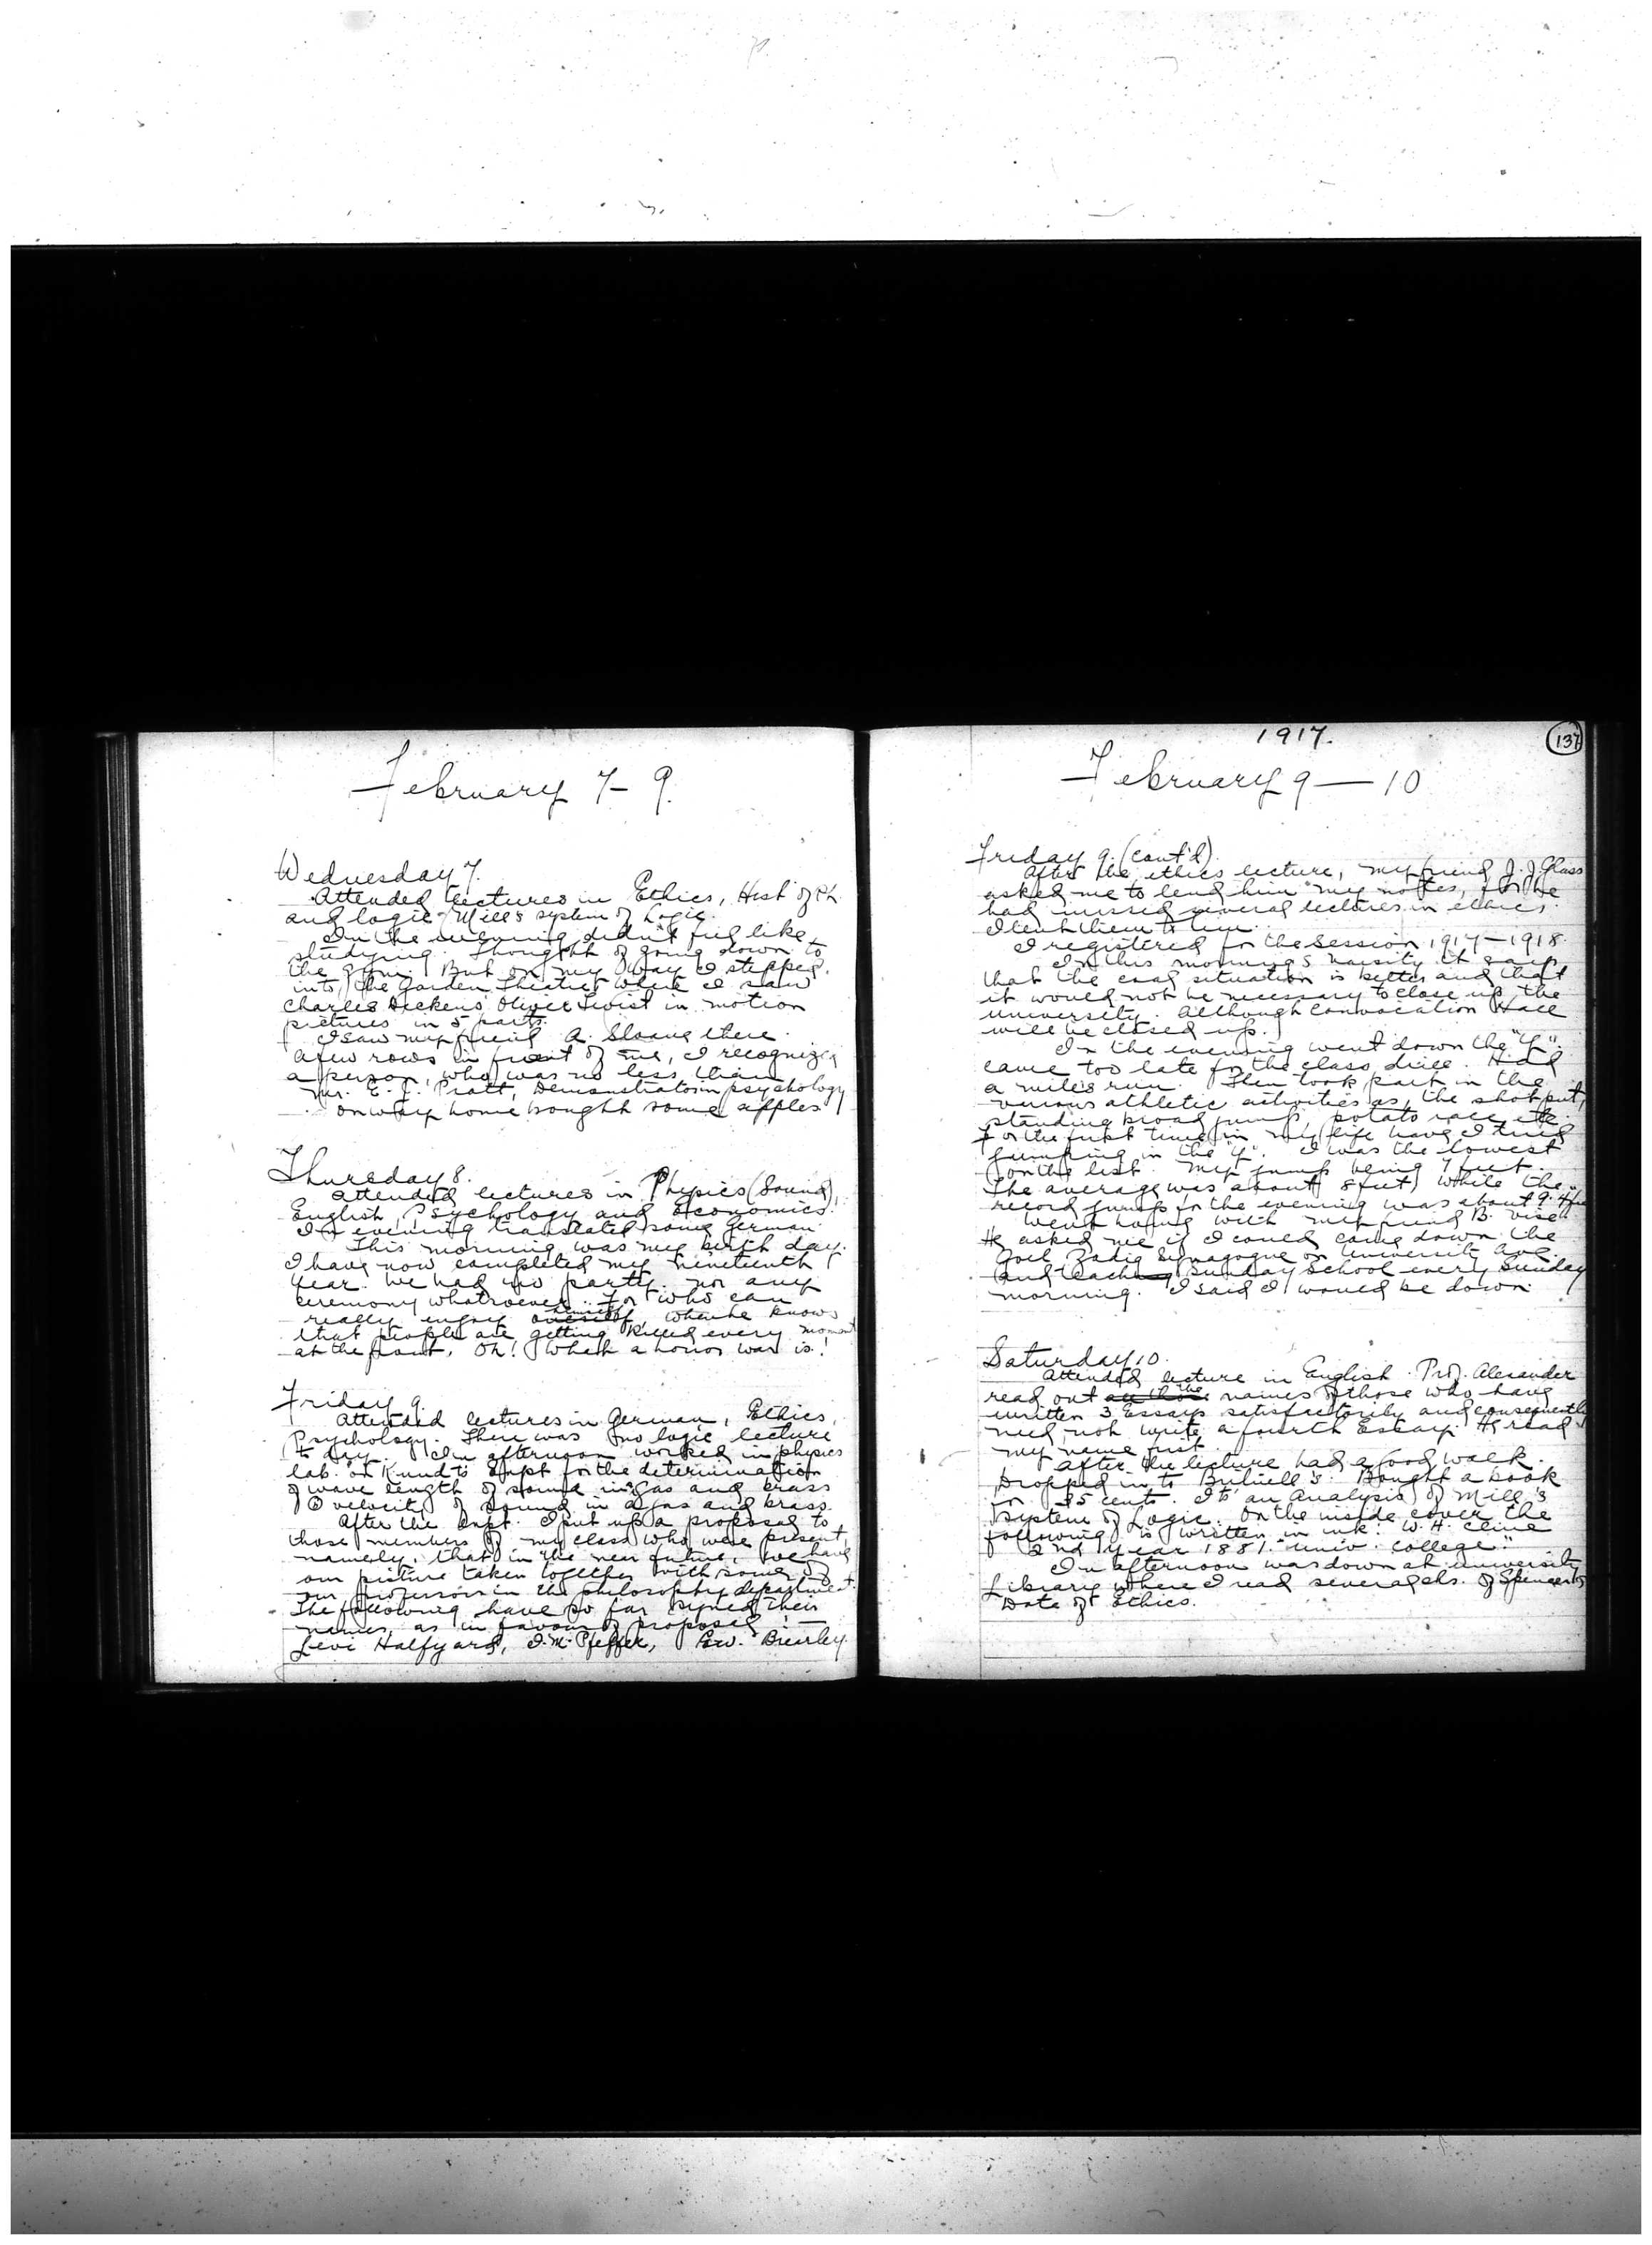 February 7 - 9.
Wednesday 7.
Attended lectures in Ethics, Hist of Ph.
and logic - Mill's system of Logic.
In the evening didn't feel like
studying. Thought of going down to
the gym. But on my way I stepped
into the Garden Theatre where I saw
Charles Dickens' Oliver Twist in motion
pictures in 5 parts.
I saw my friend A. Sloane there.
A few rows in front of me, I recognized
a person, who was no less than
Mr. E. J. Pratt, Demonstrator in psychology
On way home bought some apples
Thursday 8.
Attended lectures in Physics (Sound),
English, Psychology and Economics.
In evening translated some German.
This morning was my birth day.
I have now completed my nineteenth
year. We had no party nor any
ceremony whatsoever. For who can
really enjoy oneself himself, when he knows
that people are getting killed every moment
at the front. Oh! What a horror war is!
Friday 9.
Attended lectures in German, Ethics,
Psychology. There was no logic lecture
to day. In afternoon worked in physics
lab. on Kundt's Expt for the determination
of wave length of sound in gas and brass
② velocity of sound in a gas and brass.
After the Expt. I put up a proposal to
those members of my class who were present,
namely, that in the near future, we have
our picture taken together with some of
our professors in the philosophy department.
The following have so far signed their
names, as in favour of proposal:—
Levi Halfyard, I. M. Pfeffer, Brierley.
1917.
137
February 9 — 10
Friday 9. (Cont'd)
After the ethics lecture, my friend J. J. Glass
asked me to lend him my notes, for he
had missed several lectures in ethics.
I lent them to him.
I registered for the session 1917–1918.
In this morning's Varsity it says
that the coal situation is better and that
it would not be necessary to close up the
university. Although Convocation Hall
will be closed up.
In the evening went down the "Y".
Came too late for the class drill. Had
a mile's run. Then took part in the
various athletic activities as, the shot put,
standing broad jump, potato race etc
For the first time in my life have I tried
jumping in the "Y". I was the lowest
on the list. My jump being 7 feet.
The average was about 8 feet, while the
record jump for the evening was about 9.
Went home with my friend B.
He asked me if I could come down the
Goel Zedig Synagogue on University Ave.
and teach Sunday School every Sunday
morning. I said I would be down.
Saturday 10.
Attended lecture in English. Prof. Alexander
read out all those the names of those who have
written 3 Essays satisfactorily and consequently
need not write a fourth Essay. He read
my name first.
After the lecture had a good walk.
Dropped in to Britnell's. Bought a book
for 35 cents. It's an Analysis of Mill's
System of Logic. On the inside cover the
following is written in ink: "W. H. Cline
2nd year 1881. Univ. College"
In afternoon was down at University
Library where I read several chs. of Spencer's
Data of Ethics.